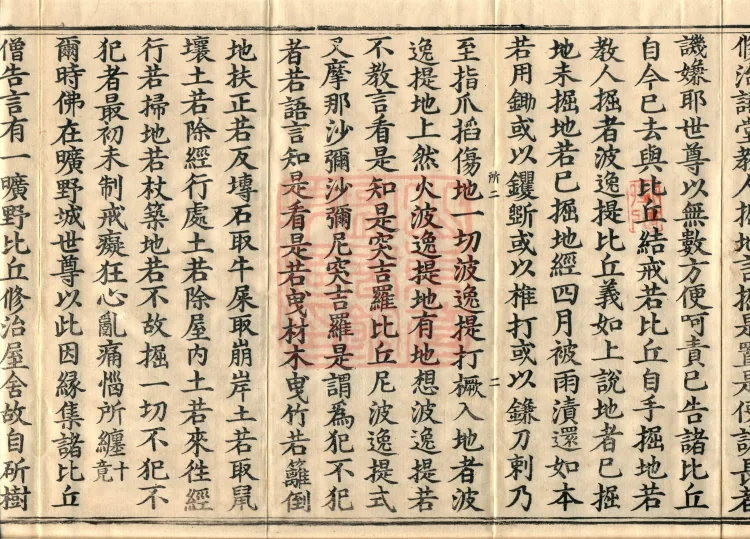 修治講堂教人掘地言掘是置是信諸長者
譏嫌耶世尊以無數方便呵責已告諸比丘
自今已去與比丘結戒若比丘自手掘地若
教人掘者波逸提比丘義如上說地者已掘
地未掘地若已掘地經四月被雨漬還如本
若用鋤或以钁斲或以椎打或以鎌刀刺乃
所二
二
至指爪搯傷地一切波逸提打橛入地者波
逸提地上然火波逸提地有地想波逸提若
不教言看是知是突吉羅比丘尼波逸提式
叉摩那沙彌沙彌尼突吉羅是謂為犯不犯
者若語言知是看是若曳材木曳竹若籬倒
地扶正若反塼石取牛屎取崩岸土若取鼠
壤土若除經行處土若除屋內土若來往經
行若掃地若杖築地若不故掘一切不犯不
犯者最初未制戒癡狂心亂痛惱所纏十竟
爾時佛在曠野城世尊以此因緣集諸比丘
僧告言有一曠野比丘修治屋舍故自斫樹